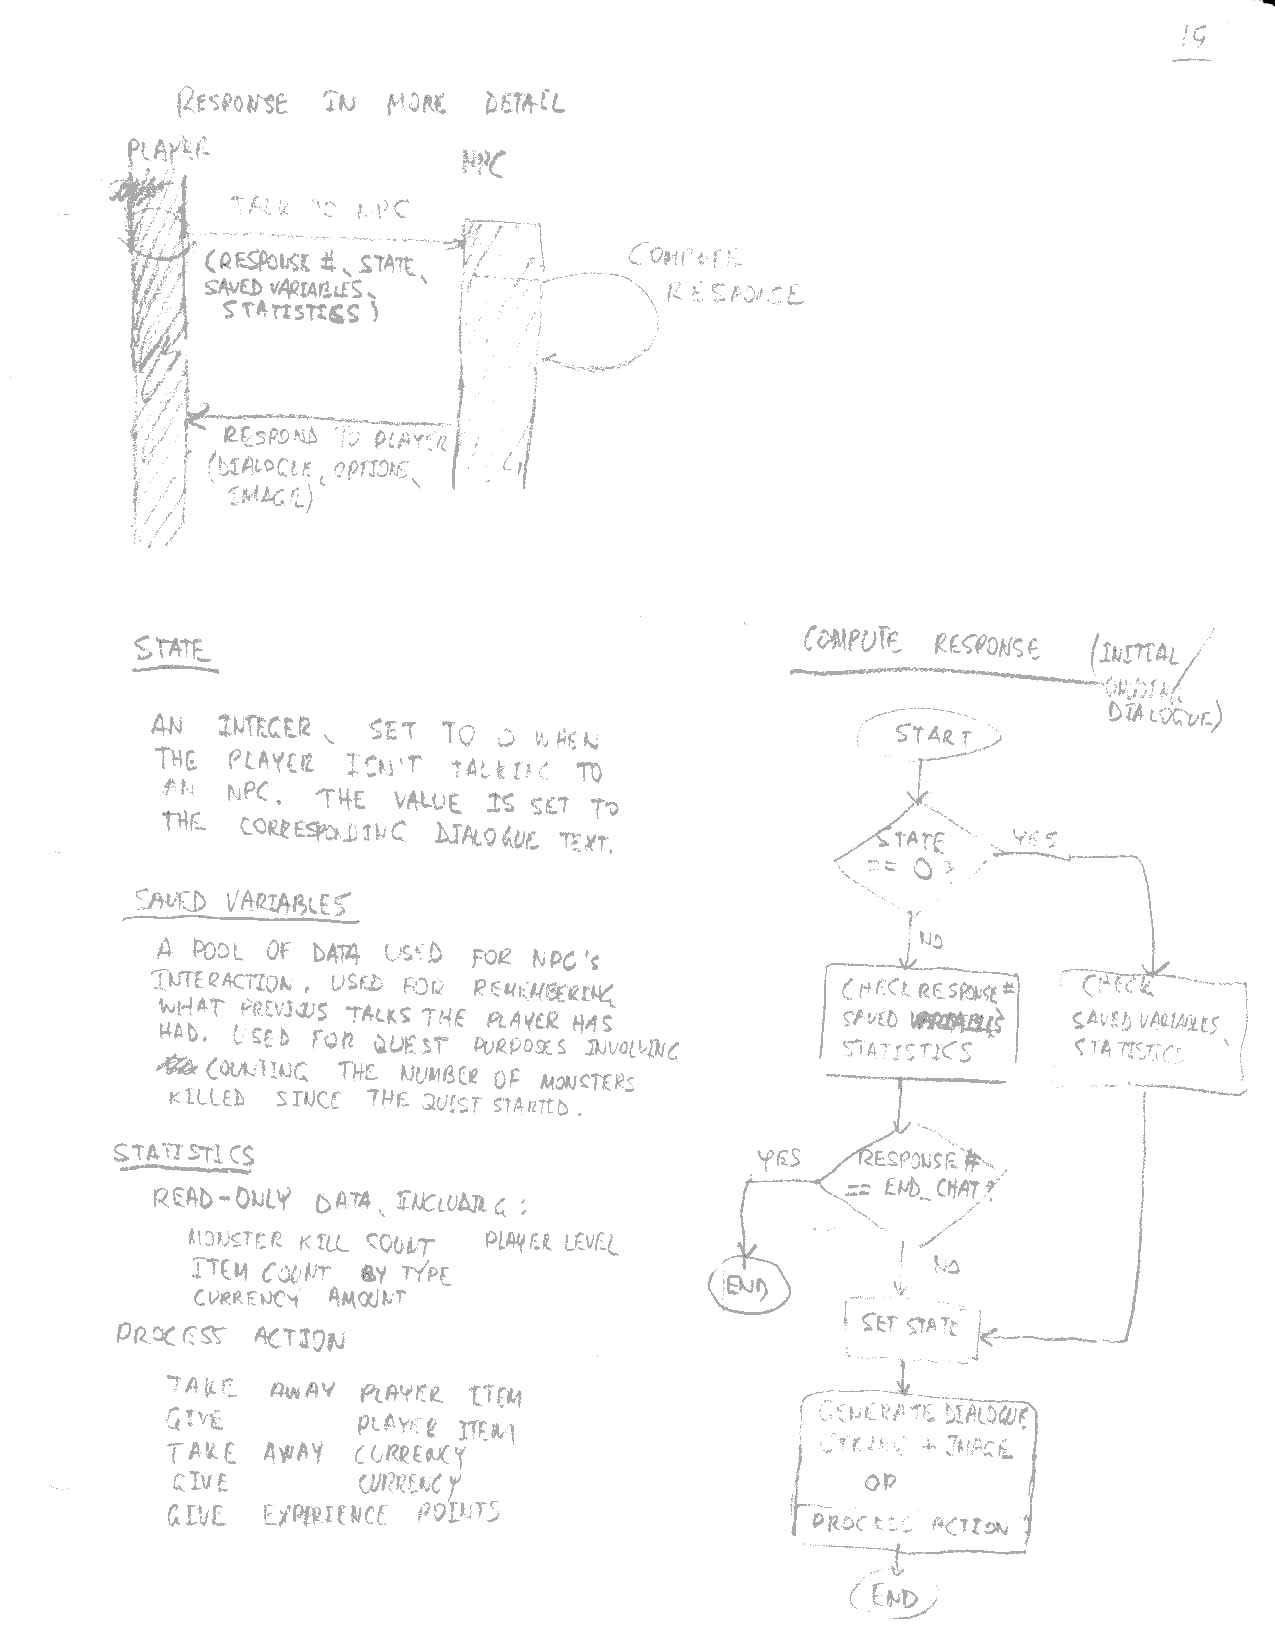 19
RESPONSE IN MORE DETAIL
PLAYER
NPC
TALK TO NPC
(RESPONSE #, STATE,
SAVED VARIABLES,
STATISTICS)
COMPUTE
RESPONSE
RESPOND TO PLAYER
(DIALOGUE, OPTIONS,
IMAGE)
STATE
AN INTEGER, SET TO 0 WHEN
THE PLAYER ISN'T TALKING TO
AN NPC. THE VALUE IS SET TO
THE CORRESPONDING DIALOGUE TEXT.
SAVED VARIABLES
A POOL OF DATA USED FOR NPC'S
INTERACTION. USED FOR REMEMBERING
WHAT PREVIOUS TALKS THE PLAYER HAS
HAD. USED FOR QUEST PURPOSES INVOLVING
COUNTING THE NUMBER OF MONSTERS
KILLED SINCE THE QUEST STARTED.
STATISTICS
READ-ONLY DATA, INCLUDING:
MONSTER KILL COUNT PLAYER LEVEL
ITEM COUNT BY TYPE
CURRENCY AMOUNT
PROCESS ACTION
TAKE AWAY PLAYER ITEM
GIVE PLAYER ITEM
TAKE AWAY CURRENCY
GIVE CURRENCY
GIVE EXPERIENCE POINTS
COMPUTE RESPONSE (INITIAL/
DIALOGUE)
START
STATE
== 0?
YES
NO
CHECK RESPONSE #
SAVED VARIABLES
STATISTICS
CHECK
SAVED VARIABLES,
STATISTICS
YES
RESPONSE #
== END_CHAT?
END
NO
SET STATE
GENERATE DIALOGUE
STRING + IMAGE
OR
PROCESS ACTION
END